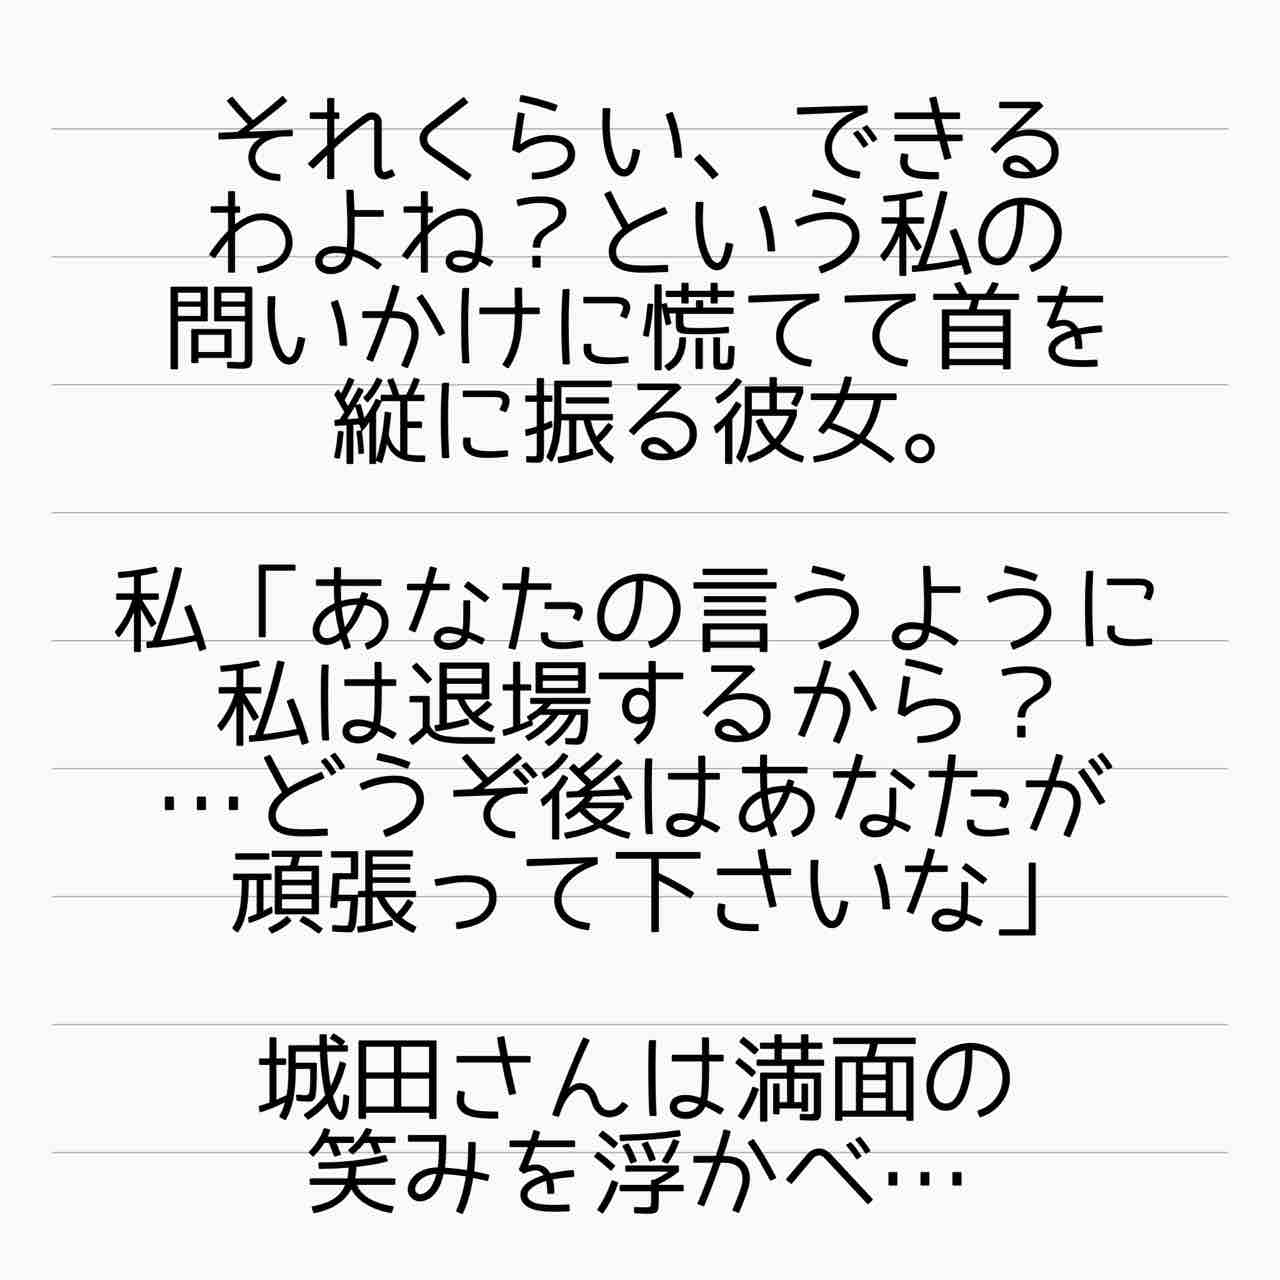 それくらい、できる
わよね？という私の
問いかけに慌てて首を
縦に振る彼女。
私「あなたの言うように
私は退場するから？
…どうぞ後はあなたが
頑張って下さいな」
城田さんは満面の
笑みを浮かべ…